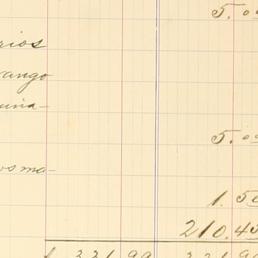 5.0
rios
ango
uña-
5.0
os ma-
1.50
210.45
321.99 321.99